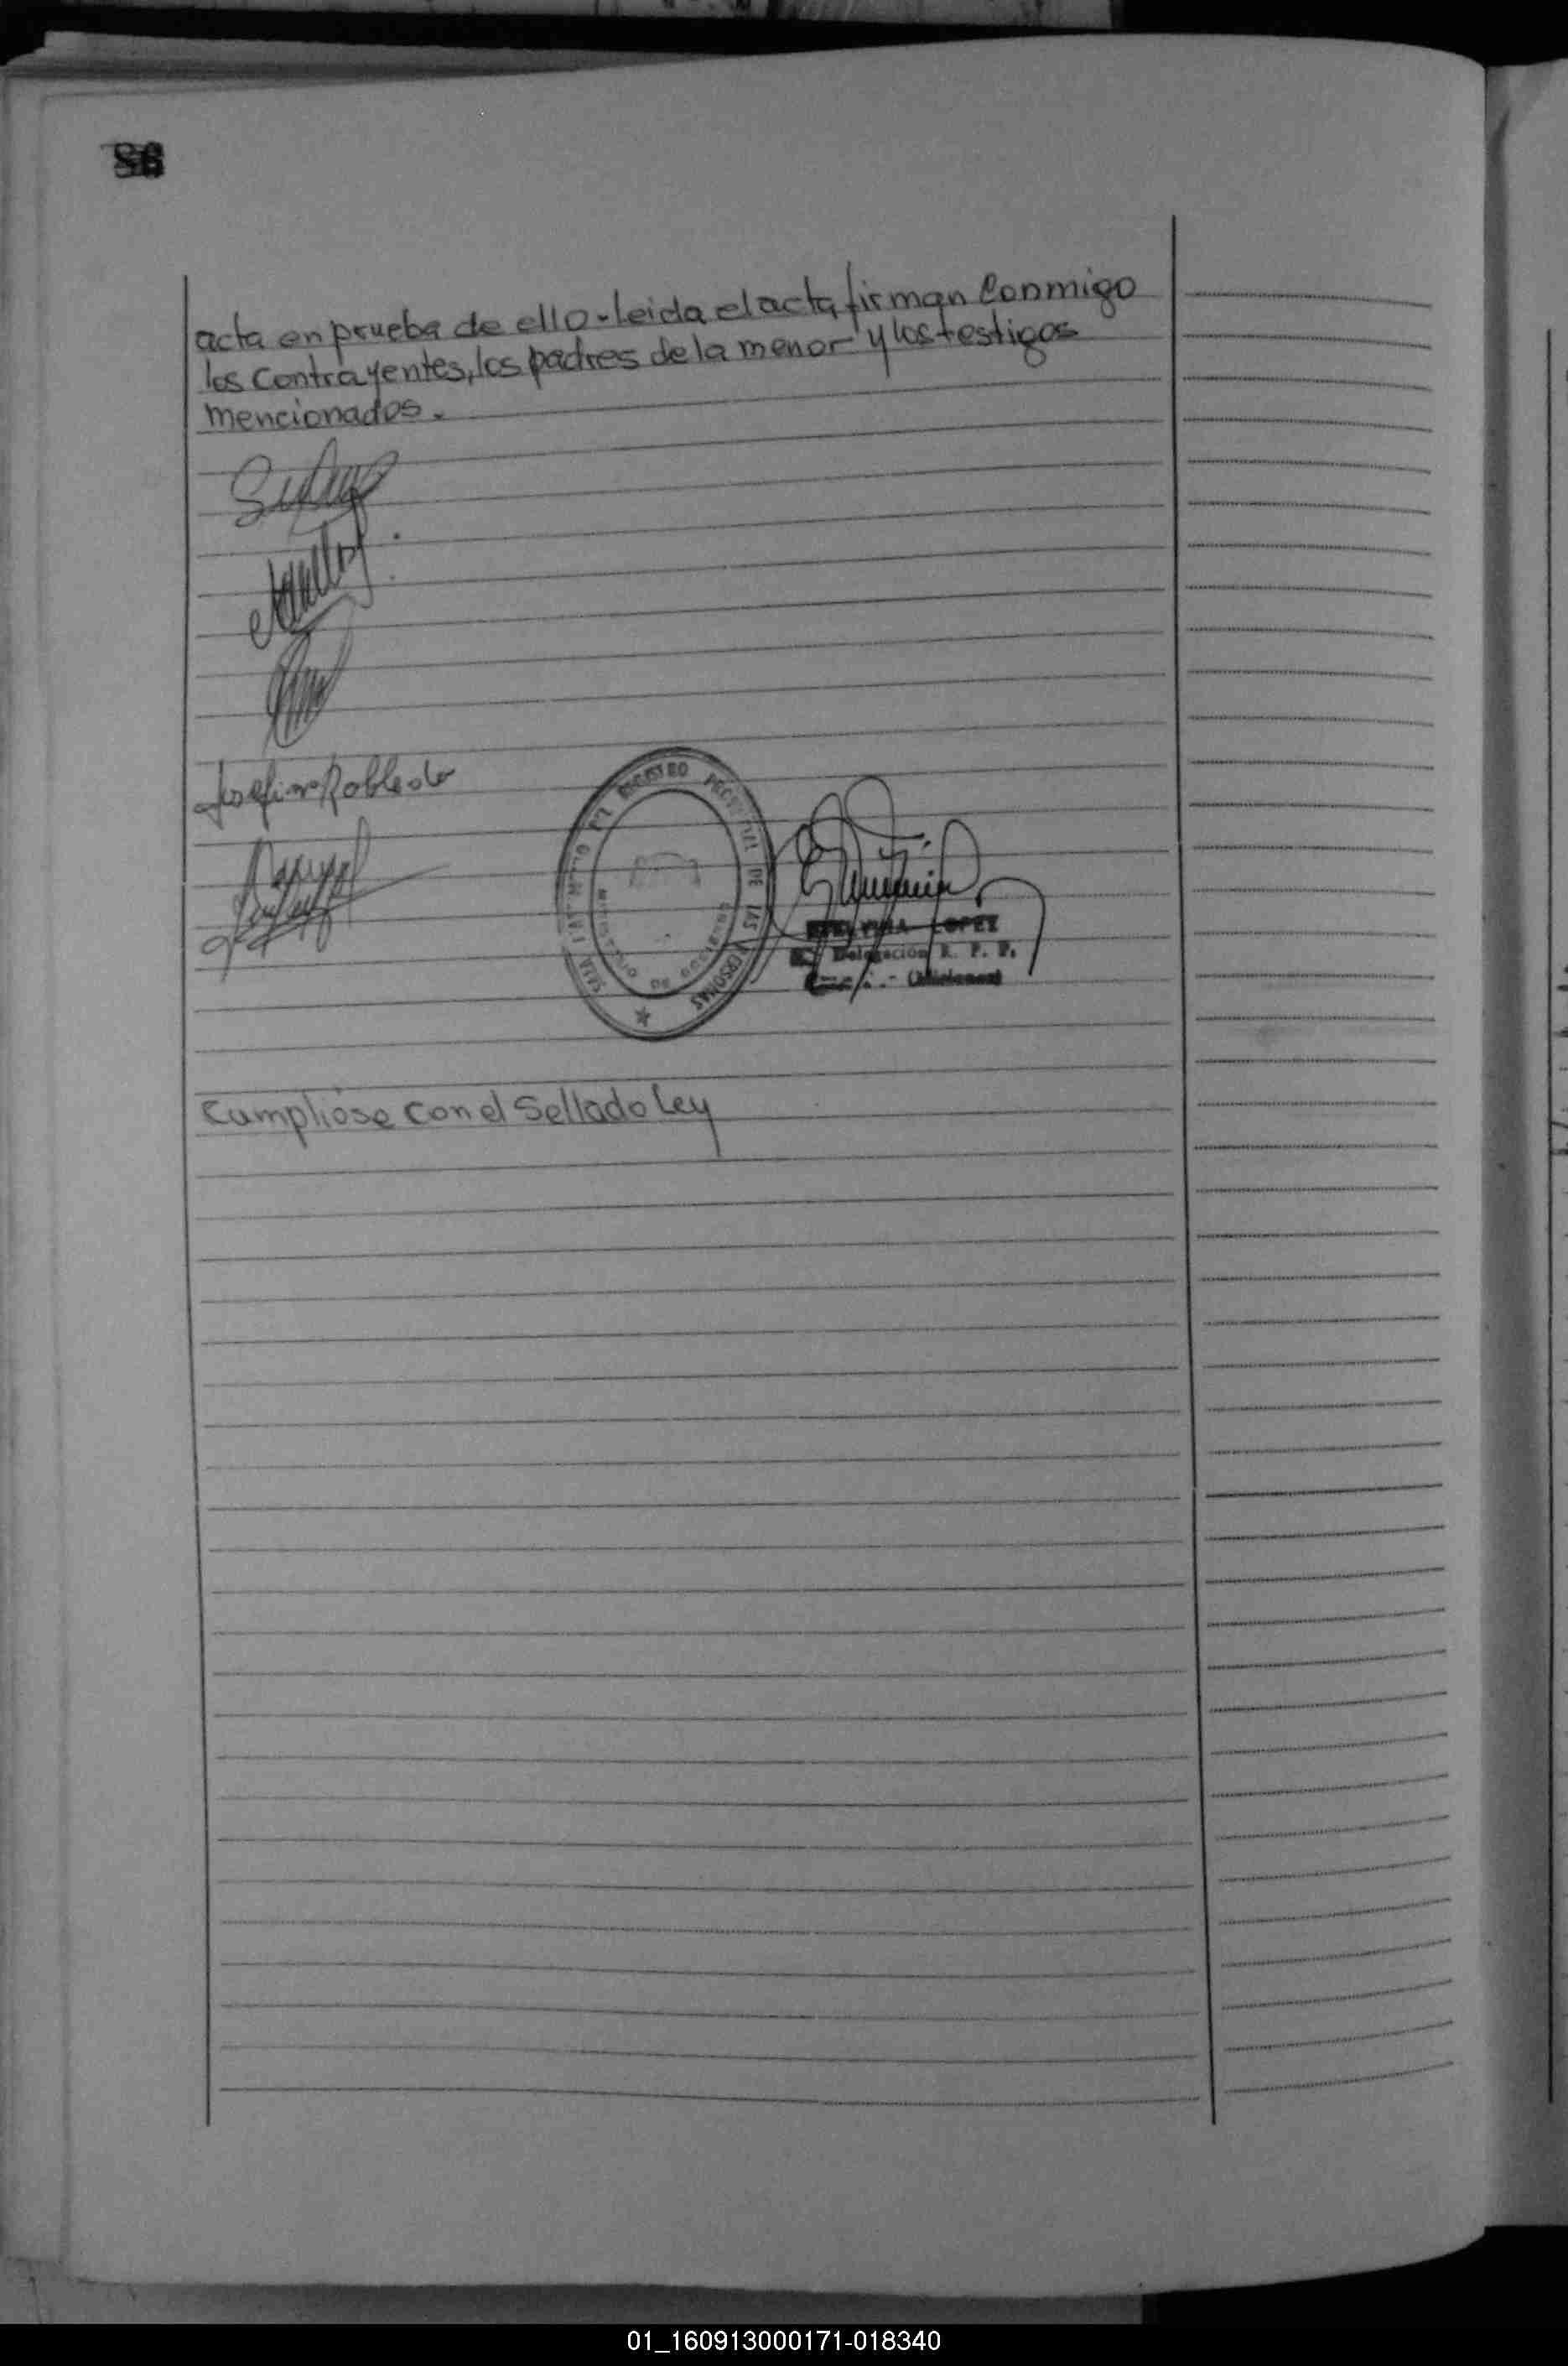 86
acta en prueba de ello.- Leida el acta, firman Conmigo
los Contrayentes, los padres de la menor y los testigos
mencionados.
Josefina Robledo
REGISTRO PROVINCIAL DE LAS PERSONAS
LOPEZ
Delegación R. P. P.
(Misiones)
Cumpliose con el Sellado Ley
01_160913000171-018340